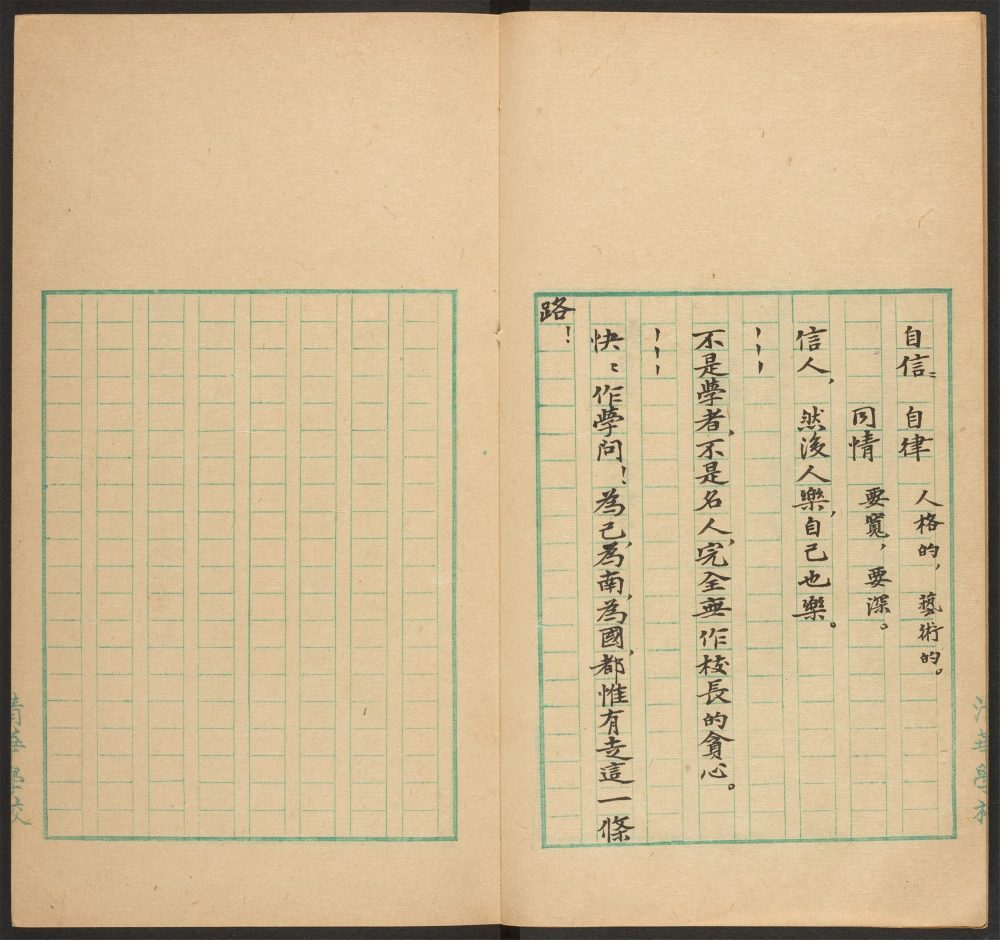 自信＝ 自律 人格的，藝術的。
同情 要寬，要深。
信人，然後人樂，自己也樂。
、、、
不是學者，不是名人，完全無作校長的貪心。
、、、
快快作學問！為己，為南，為國，都惟有走這一條
路！
清華學校